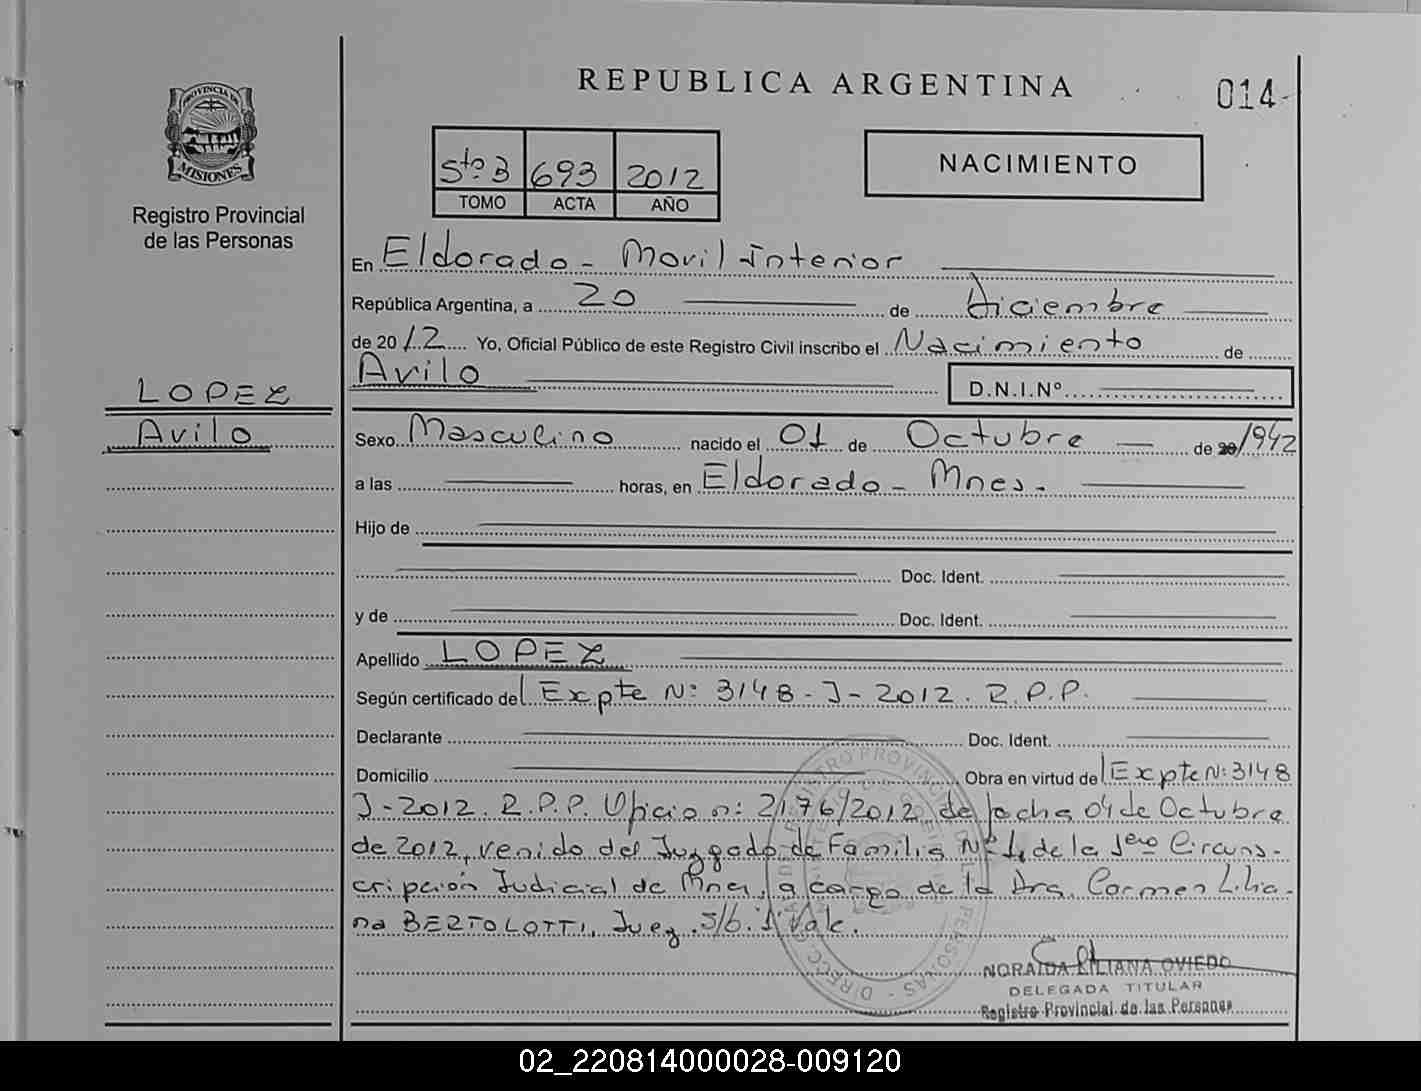 REPUBLICA ARGENTINA
014
PROVINCIA DE
MISIONES
Registro Provincial
de las Personas
5to B 693 2012
TOMO ACTA AÑO
NACIMIENTO
En Eldorado - Movil Interior
República Argentina, a 20 de Diciembre
de 2012 Yo, Oficial Público de este Registro Civil inscribo el Nacimiento de
Avilo D.N.I.Nº
LOPEZ
Avilo
Sexo Masculino nacido el 01 de Octubre de 1942
a las horas, en Eldorado - Mnes.
Hijo de
Doc. Ident.
y de Doc. Ident.
Apellido LOPEZ
Según certificado del Expte Nº: 3148 - J - 2012. R.P.P.
Declarante Doc. Ident.
Domicilio Obra en virtud del Expte Nº: 3148
J - 2012. R.P.P. Oficio nº: 2176/2012, de fecha 04 de Octubre
de 2012, venido del Juzgado de Familia Nº 1, de la 1era Circuns-
cripción Judicial de Mnes, a cargo de la Dra. Carmen Lilia-
na BERTOLOTTI, Juez. S/b. 1 Vale.
NORAIDA LILIANA OVIEDO
DELEGADA TITULAR
Registro Provincial de las Personas
02_220814000028-009120